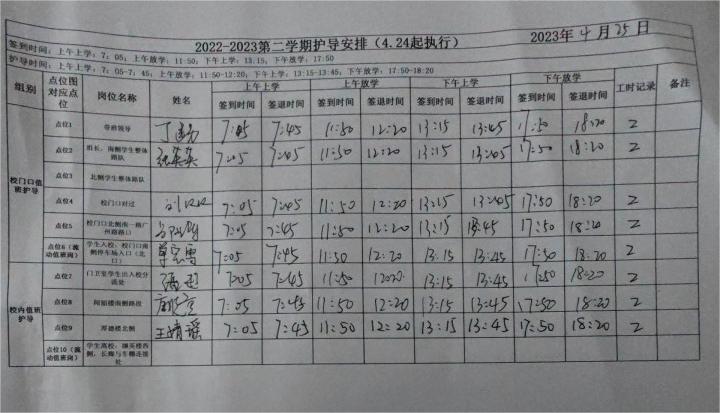 2022-2023第二学期护导安排（4.24起执行） 2023年4月25日
签到时间：上午上学：7：05；上午放学：11:50；下午上学：13:15；下午放学：17:50
护导时间：上午上学：7:05-7：45；上午放学：11:50-12:20；下午上学：13:15-13:45；下午放学：17:50-18:20
组别 点位图对应点位 岗位名称 姓名 上午上学 上午放学 下午上学 下午放学 工时记录 备注
签到时间 签退时间 签到时间 签退时间 签到时间 签退时间 签到时间 签退时间
校门口值班护导
点位1 带班领导 7:05 7:45 11:50 12:20 13:15 13:45 17:50 18:20 2
点位2 组长，南侧学生整体路队 7:05 7:05 11:50 12:20 13:15 13:05 17:50 18:20 2
点位3 北侧学生整体路队
点位4 校门口对过 7:05 7:45 11:50 12:20 13:15 13:45 17:50 18:20 2
点位5 校门口北侧南一路广州路路口 7:05 7:45 11:50 12:20 13:15 13:45 17:50 18:20 2
点位6（流动值班岗） 学生入校：校门口南侧停车场入口（北口） 7:05 7:45 11:50 12:20 13:15 13:45 17:50 18:20 2
校内值班护导
点位7 门卫室学生出入校分流处 7:05 7:45 11:50 12:20 13:15 13:45 17:50 18:20 2
点位8 7:05 7:45 11:50 12:20 13:15 13:45 17:50 18:20 2
点位9 厚德楼北侧 王婧瑶 7:05 7:45 11:50 12:20 13:15 13:45 17:50 18:20 2
点位10（流动值班岗） 学生离校：